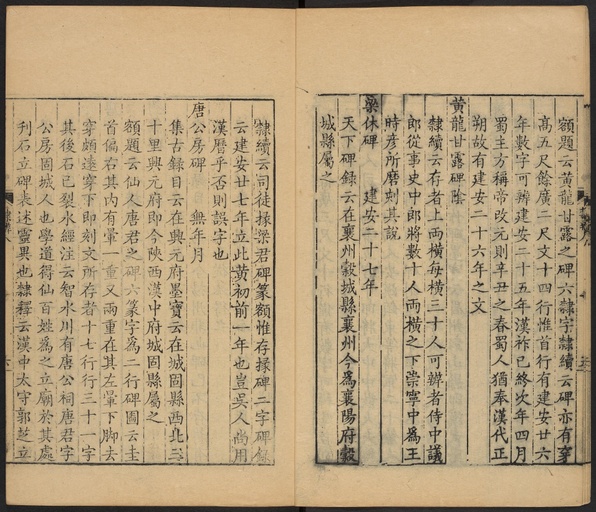 額題云黃龍甘露之碑六隸字隸續云碑亦有穿
高五尺餘廣二尺文十四行惟首行有建安廿六
年數字可辨建安二十五年漢祚已終次年四月
蜀主方稱帝改元則辛丑之春蜀人猶奉漢代正
朔故有建安二十六年之文
黃龍甘露碑陰
隸續云存者上兩橫每橫三十人可辨者侍中議
郎從事史中郎將數十人兩橫之下崇寧中為王
時彥所磨刻其說
梁休碑 建安二十七年
天下碑錄云在襄州穀城縣襄州今為襄陽府穀
城縣屬之
隸續云司徒掾梁君碑篆額惟存掾碑二字碑錄
云建安廿七年立此黃初前一年也豈吳人尚用
漢曆乎否則誤字也
唐公房碑 無年月
集古錄目云在興元府墨寶云在城固縣西北三
十里興元府即今陝西漢中府城固縣屬之
額題云仙人唐君之碑六篆字為二行碑圖云圭
首偏右其內有暈一重又兩重在其左暈下腳去
穿頗遠穿下即刻文所存者十七行行三十一字
其後石已裂水經注云智水川有唐公祠唐君字
公房固城人也學道得仙百姓為之立廟於其處
刋石立碑表述靈異也隸釋云漢中太守郭芝立